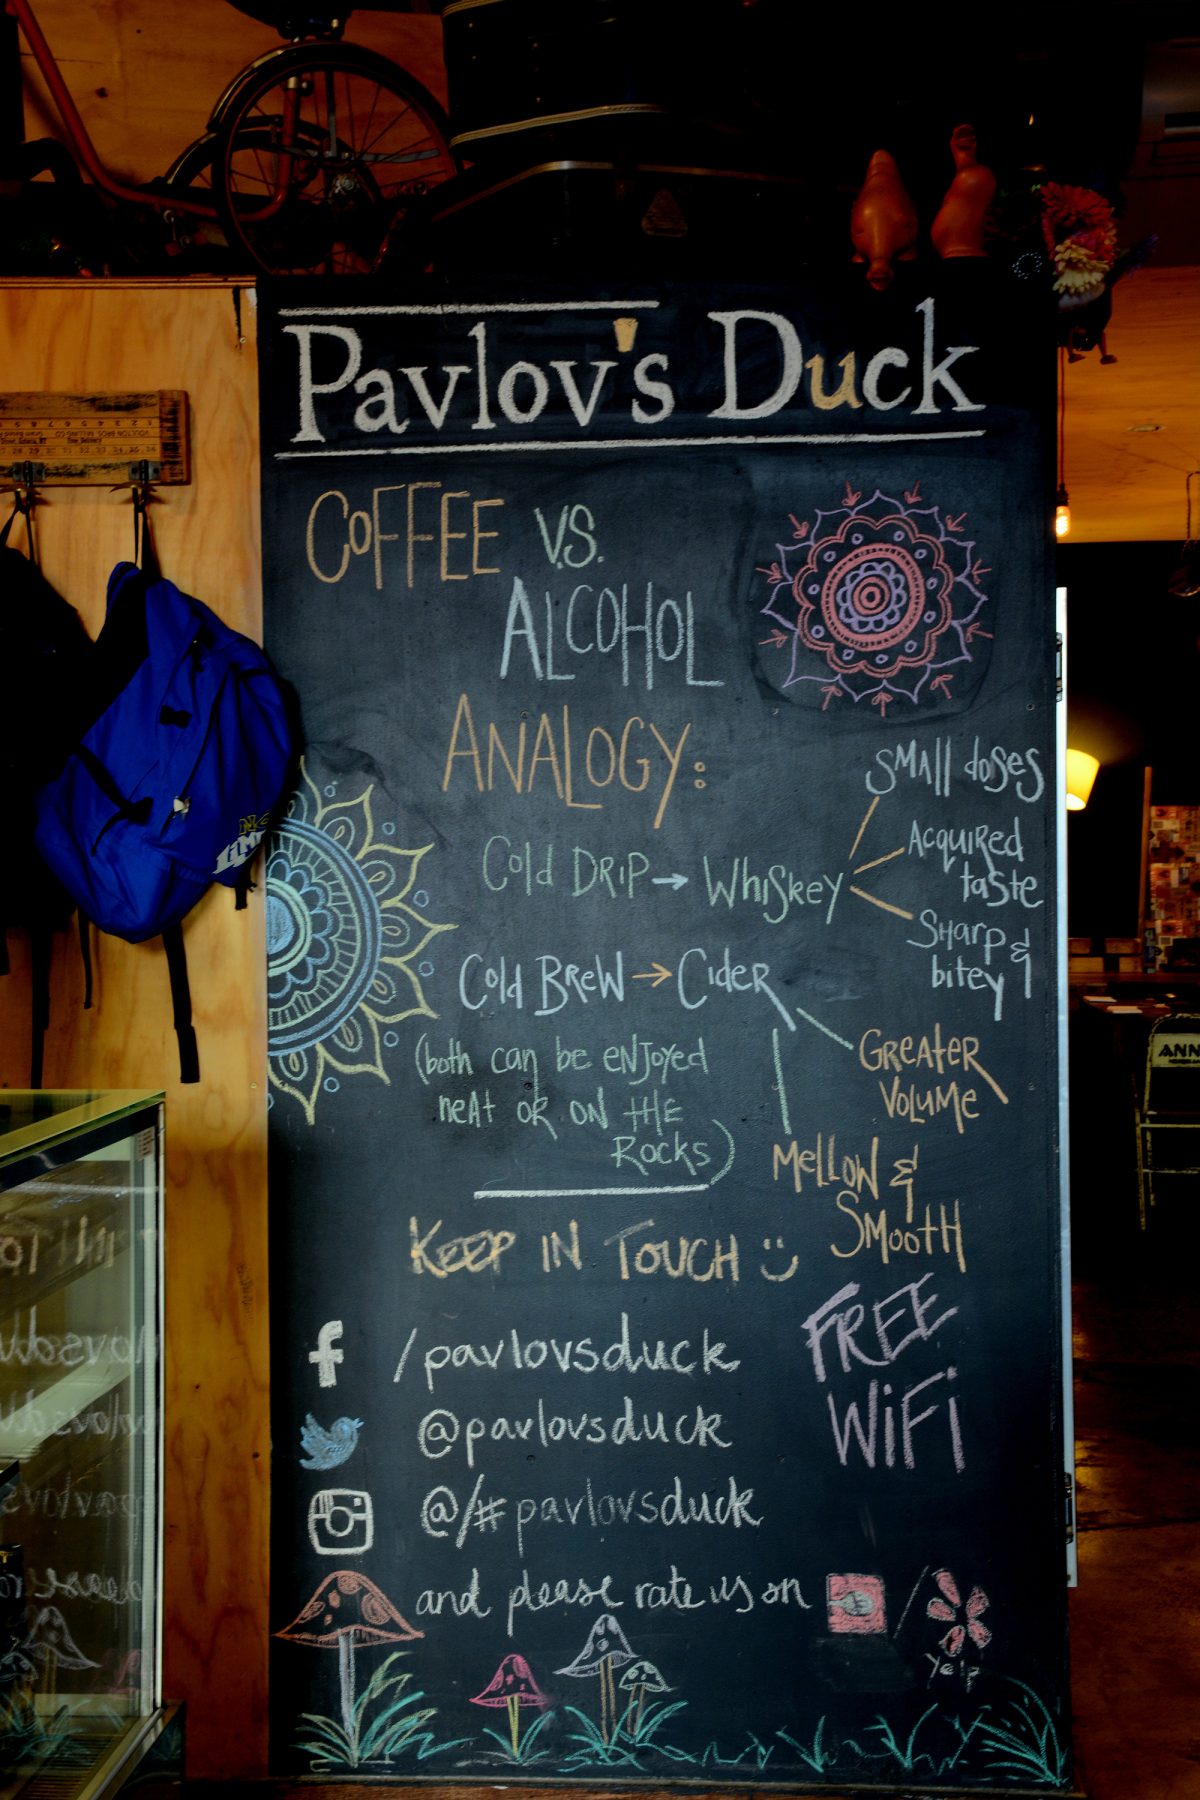 Pavlov's Duck
COFFEE V.S.
ALCOHOL
ANALOGY:
Cold DRIP → WHISKEY
SMALL doSES
ACQUIRED
taSte
SHarp &
bitey
Cold BREW → CideR
GREATER
VOLUME
MELLOW &
SMOOTH
(both can be enjoyed
neat or on the
Rocks)
KEEP IN TOUCH
FREE
WiFi
f /pavlovsduck
@pavlovsduck
@/#pavlovsduck
and please rate us on /
yelp
ANN